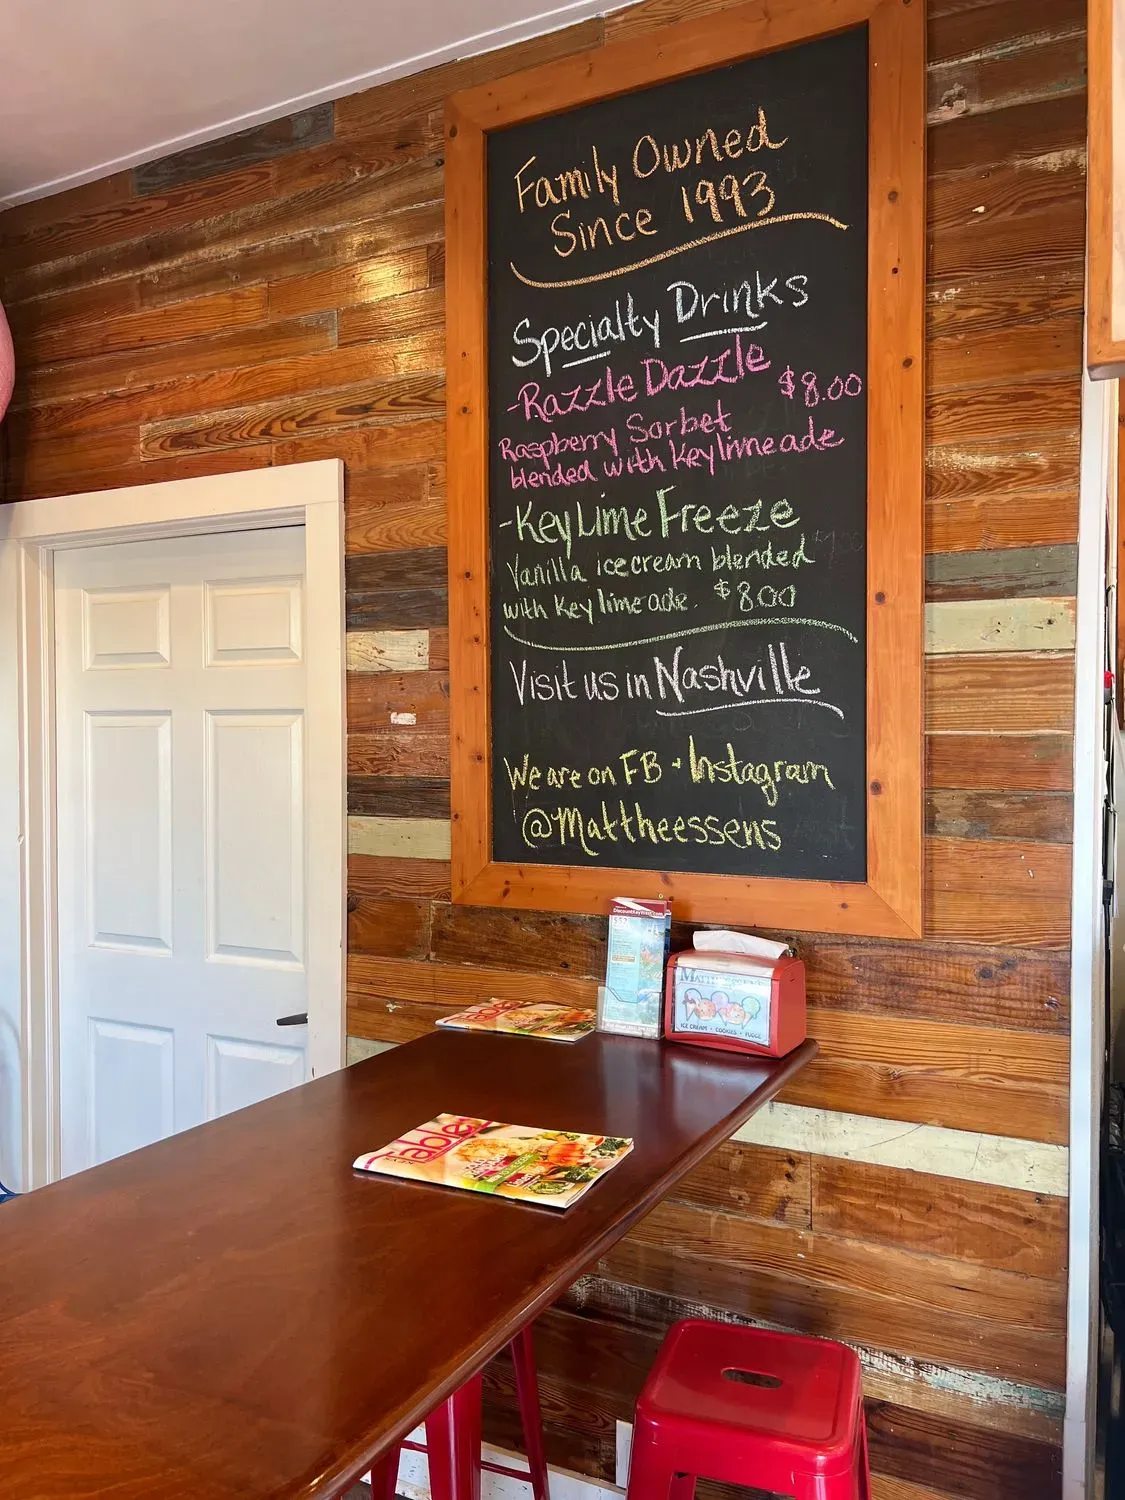 Family Owned
Since 1993
Specialty Drinks
-Razzle Dazzle
$8.00
Raspberry Sorbet
blended with Keylimeade
-Key Lime Freeze
Vanilla icecream blended
with Key limeade. $8.00
Visit us in Nashville
We are on FB + Instagram
@Mattheessens
DiscountKeyWest.com
ICE CREAM • COOKIES • FUDGE
table